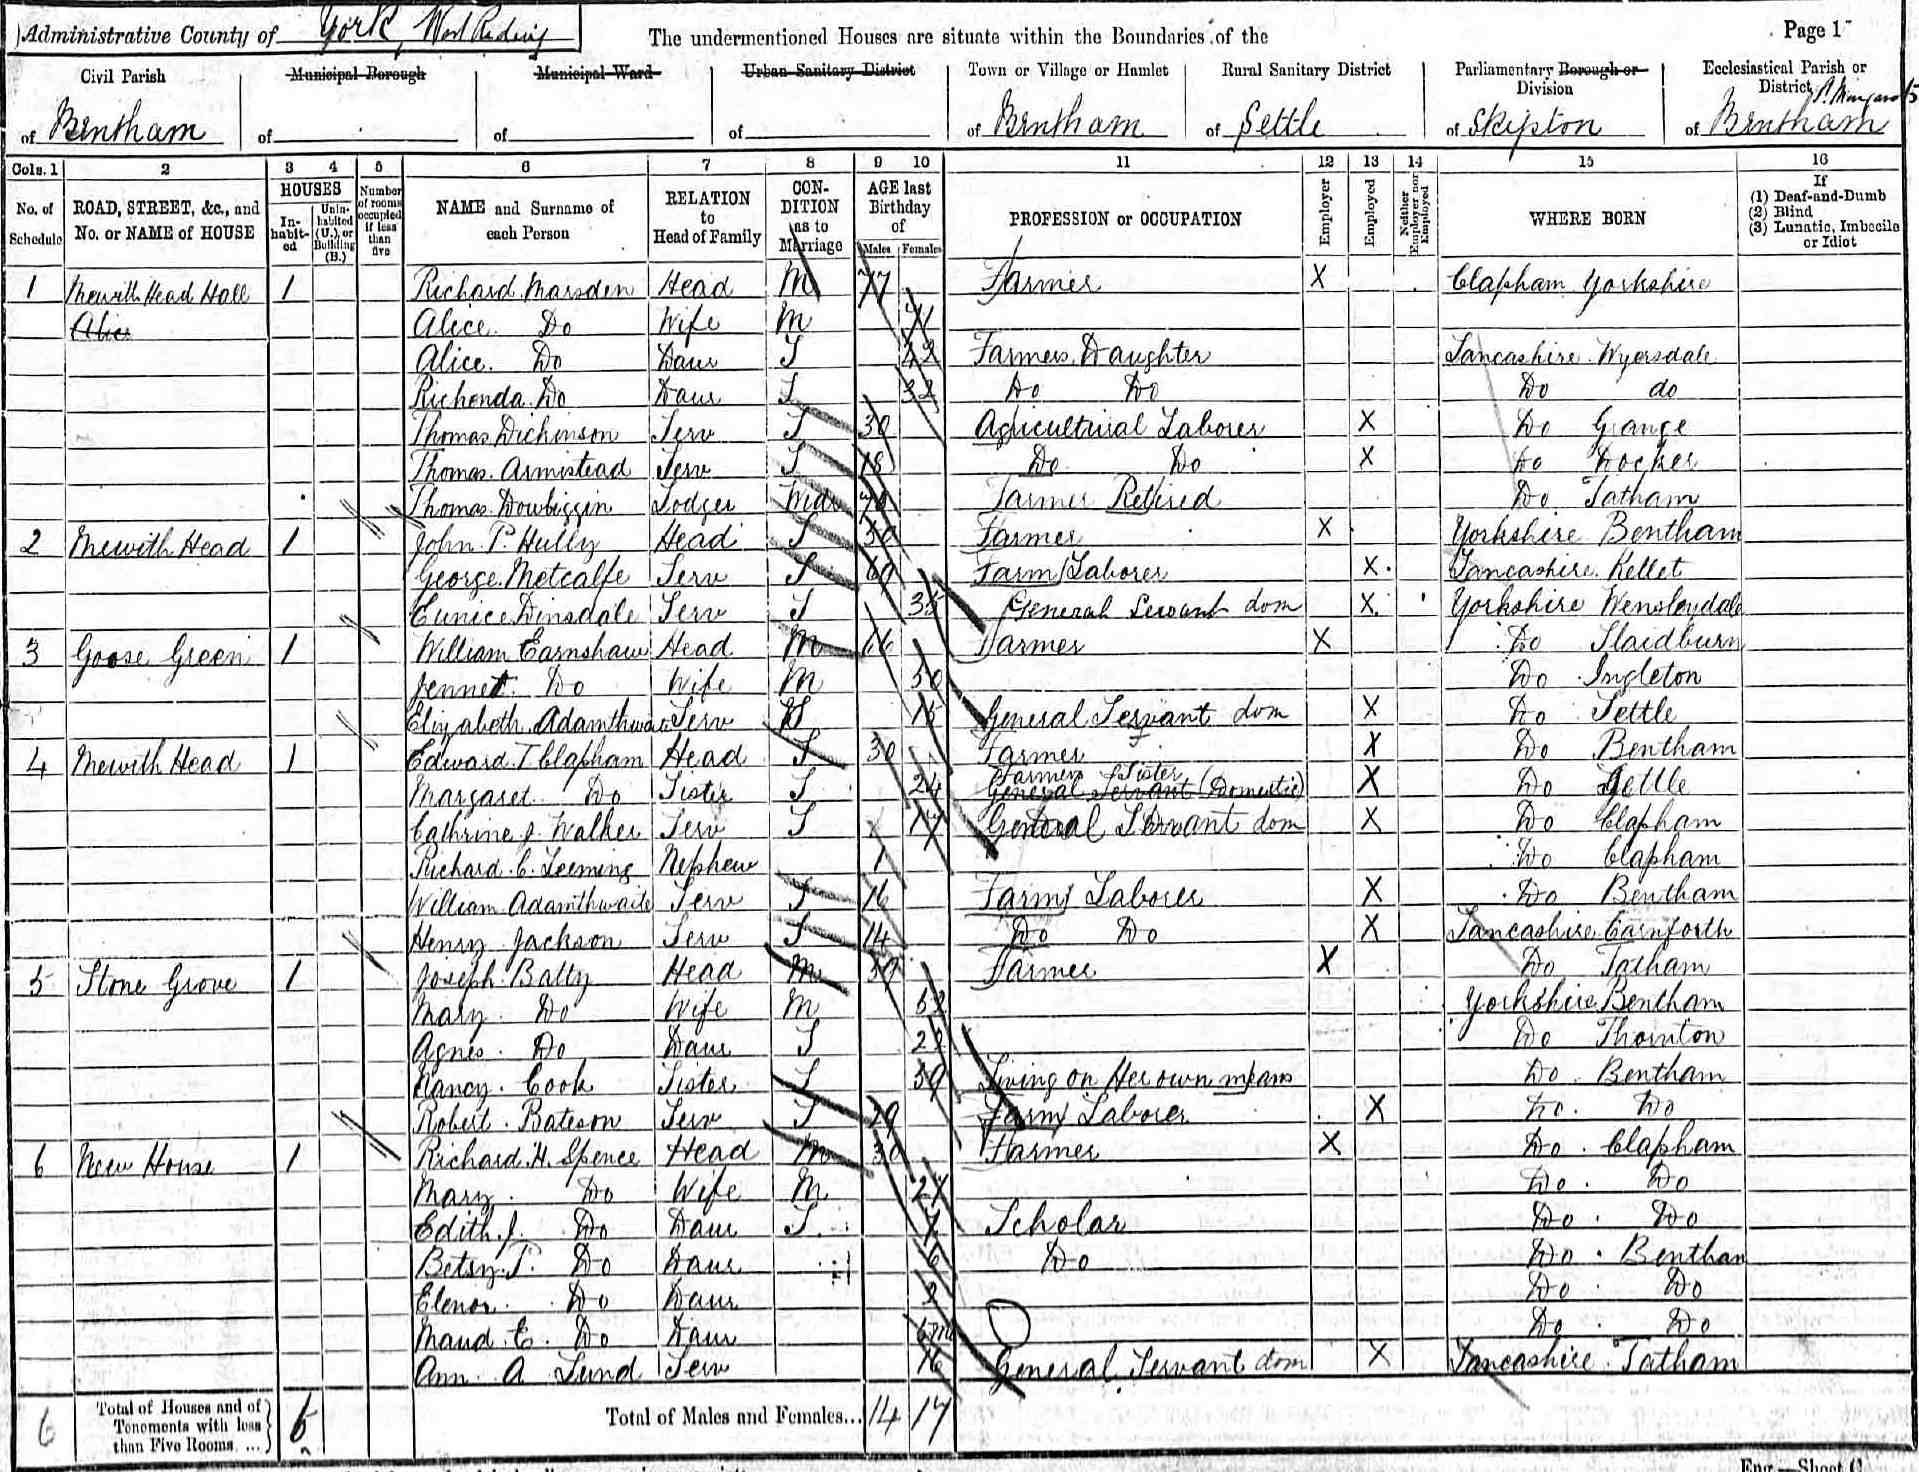 Administrative County of York, West Riding
The undermentioned Houses are situate within the Boundaries of the
Page 1
Civil Parish of Bentham
Municipal Borough of
Municipal Ward of
Urban Sanitary District of
Town or Village or Hamlet of Bentham
Rural Sanitary District of Settle
Parliamentary Borough or Division of Skipton
Ecclesiastical Parish or District of St. Margarets Bentham
Cols. 1 2 3 4 5 6 7 8 9 10 11 12 13 14 15 16
No. of Schedule
ROAD, STREET, &c., and No. or NAME of HOUSE
HOUSES
In-habit-ed
Unin-habited (U.), or Building (B.)
Number of rooms occupied if less than five
NAME and Surname of each Person
RELATION to Head of Family
CON-DITION as to Marriage
AGE last Birthday of
Males Females
PROFESSION or OCCUPATION
Employer
Employed
Neither Employer nor Employed
WHERE BORN
If
(1) Deaf-and-Dumb
(2) Blind
(3) Lunatic, Imbecile or Idiot
1 Mewith Head Hall 1 Richard Marsden Head M 77 Farmer X Clapham Yorkshire
Alice Alice Do Wife M 71
Alice Do Daur S 42 Farmers Daughter Lancashire Wyersdale
Richenda Do Daur S 32 Do Do Do do
Thomas Dickinson Serv S 30 Agricultural Laborer X Do Grange
Thomas Armistead Serv S 18 Do Do X Do Docker
Thomas Dowbiggin Lodger Widr Farmer Retired Do Tatham
2 Mewith Head 1 John P. Hully Head S 50 Farmer X Yorkshire Bentham
George Metcalfe Serv S 60 Farm Laborer X Lancashire Kellet
Eunice Dinsdale Serv S 35 General Servant dom X Yorkshire Wensleydale
3 Goose Green 1 William Earnshaw Head M 66 Farmer X Do Slaidburn
Jennet Do Wife M 50 Do Ingleton
Elizabeth Adamthwaite Serv S 15 General Servant dom X Do Settle
4 Mewith Head 1 Edward T Clapham Head S 30 Farmer X Do Bentham
Farmers Sister
Margaret Do Sister S 24 General Servant (Domestic) X Do Settle
Cathrine J. Walker Serv S 17 General Servant dom X Do Clapham
Richard C. Leeming Nephew 1 Do Clapham
William Adamthwaite Serv S 16 Farm Laborer X Do Bentham
Henry Jackson Serv S 14 Do Do X Lancashire Carnforth
5 Stone Grove 1 Joseph Batty Head M 59 Farmer X Do Tatham
Mary Do Wife M 52 Yorkshire Bentham
Agnes Do Daur S 22 Do Thornton
Nancy Cook Sister S 59 Living on Her own means Do Bentham
Robert Bateson Serv S 29 Farm Laborer X Do Do
6 New House 1 Richard H. Spence Head M 30 Farmer X Do Clapham
Mary Do Wife M 27 Do Do
Edith J. Do Daur S 7 Scholar Do Do
Betsy P. Do Daur 6 Do Do Bentham
Elenor Do Daur 2 Do Do
Maud E. Do Daur 6m Do Do
Ann A Lund Serv 16 General Servant dom X Lancashire Tatham
6 Total of Houses and of Tenements with less than Five Rooms ... 6 Total of Males and Females... 14 17
Eng.—Sheet C.